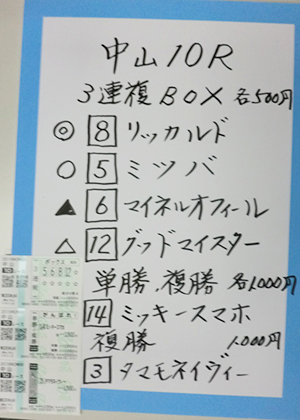 中山10R
3連複BOX 各500円
◎ 8 リッカルド
○ 5 ミツバ
▲ 6 マイネルオフィール
△ 12 グッドマイスター
単勝,複勝 各1000円
14 ミッキースマホ
複勝 1000円
3 タマモネイヴィー